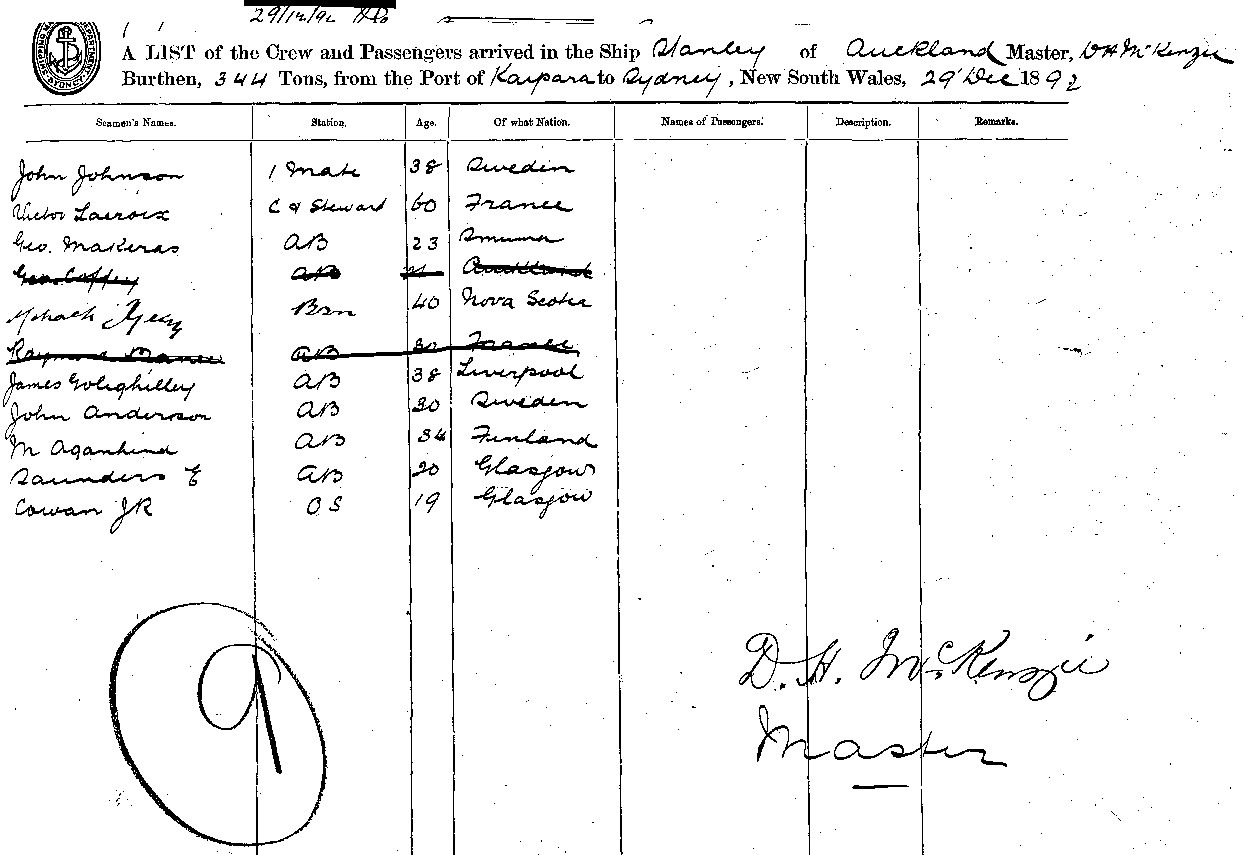 29/12/92
A LIST of the Crew and Passengers arrived in the Ship Stanley of Auckland Master, DH McKenzie
Burthen, 344 Tons, from the Port of Kaipara to Sydney, New South Wales, 29 Dec 1892
Seamen's Names. Station. Age. Of what Nation. Names of Passengers. Description. Remarks.
John Johnson 1 Mate 38 Sweden
Victor Lacroix C & Steward 60 France
Geo. Makeras AB 23
Geo. Coffey AB
Bsn 40 Nova Scotia
AB 30 France
James Golighilley AB 38 Liverpool
John Anderson AB 30 Sweden
M AB 34 Finland
Saunders E AB 20 Glasgow
Cowan JR OS 19 Glasgow
9
D. H. McKenzie
Master